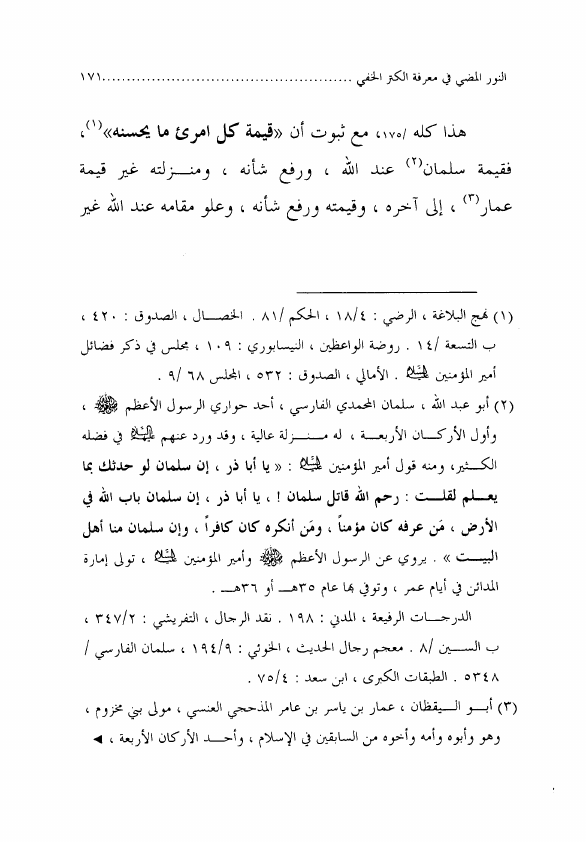 النور المضي في معرفة الكنز الخفي ..................................................١٧١
هذا كله /١٧٥، مع ثبوت أن «قيمة كل امرئ ما يحسنه»(١)،
فقيمة سلمان(٢) عند الله ، ورفع شأنه ، ومنـــزلته غير قيمة
عمار(٣) ، إلى آخره ، وقيمته ورفع شأنه ، وعلو مقامه عند الله غير
(١) نهج البلاغة ، الرضي : ١٨/٤ ، الحكم /٨١ . الخصـــال ، الصدوق : ٤٢٠ ،
ب التسعة /١٤ . روضة الواعظين ، النيسابوري : ١٠٩ ، مجلس في ذكر فضائل
أمير المؤمنين . الأمالي ، الصدوق : ٥٣٢ ، المجلس ٦٨ /٩ .
(٢) أبو عبد الله ، سلمان المحمدي الفارسي ، أحد حواري الرسول الأعظم ﷺ ،
وأول الأركـــان الأربعـــة ، له منـــزلة عالية ، وقد ورد عنهم في فضله
الكـــثير، ومنه قول أمير المؤمنين : « يا أبا ذر ، إن سلمان لو حدثك بما
يعـــلم لقلـــت : رحم الله قاتل سلمان ! ، يا أبا ذر ، إن سلمان باب الله في
الأرض ، مَن عرفه كان مؤمناً ، ومَن أنكره كان كافراً ، وإن سلمان منا أهل
البيـــت » . يروي عن الرسول الأعظم ﷺ وأمير المؤمنين ، تولى إمارة
المدائن في أيام عمر ، وتوفي بها عام ٣٥هـــ أو ٣٦هـــ .
الدرجـــات الرفيعة ، المدني : ١٩٨ . نقد الرجال ، التفريشي : ٣٤٧/٢ ،
ب الســـين /٨ . معجم رجال الحديث ، الخوئي : ١٩٤/٩ ، سلمان الفارسي /
٥٣٤٨ . الطبقات الكبرى ، ابن سعد : ٧٥/٤ .
(٣) أبـــو الـــيقظان ، عمار بن ياسر بن عامر المذحجي العنسي ، مولى بني مخزوم ،
وهو وأبوه وأمه وأخوه من السابقين في الإسلام ، وأحـــد الأركان الأربعة ، ◄